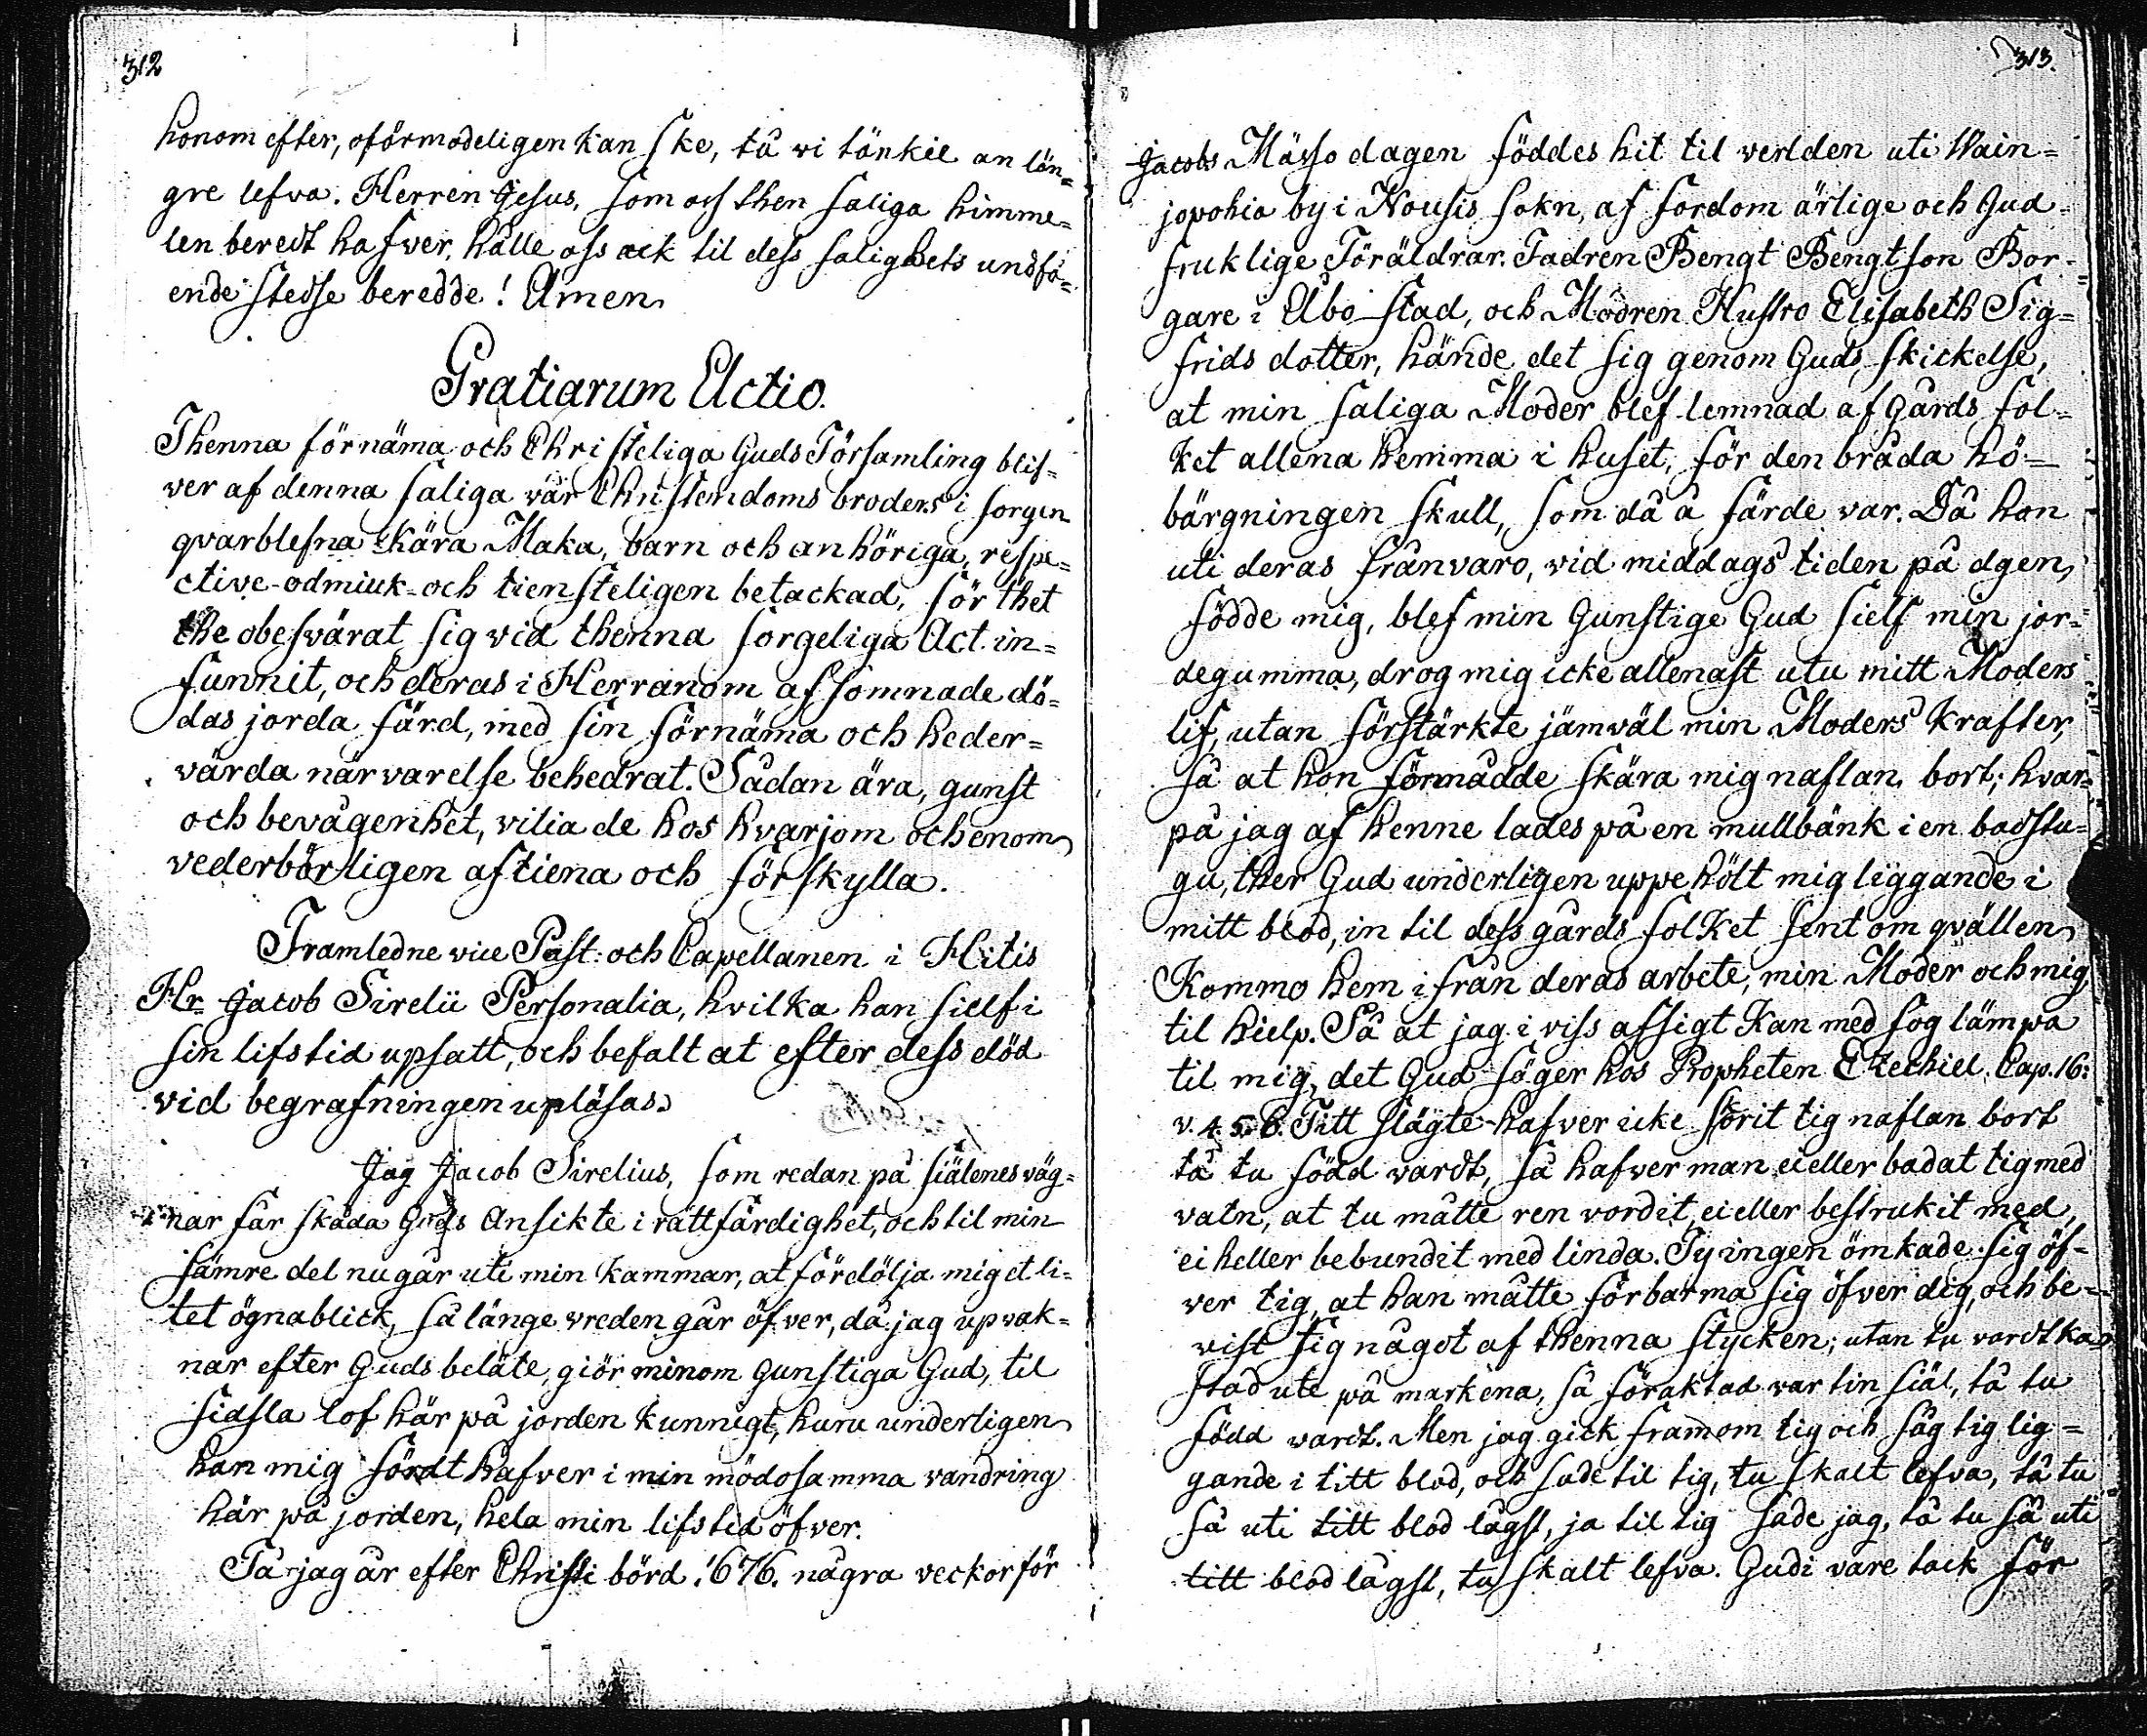 312
honom efter, oförmodeligen kan ske, tå vi tänkie än län=
gre lefva. Herren Jesus, som oss then saliga himme=
len beredt hafver, hålle oss ack til dess salighets undfå=
ende stedse beredde! Amen.
Gratiarum Actio.
Thenna förnäma och Christeliga Guds Församling blif=
ver af denna saliga vår Christendoms broders i sorgen
qvarblefna kära Maka, barn och anhöriga, respe=
ctive-ödmiuk- och tiensteligen betackad, för thet
the obesvärat sig vid thenna sorgeliga Act. in=
funnit, och deras i Herranom afsomnade dö=
das jorda färd, med sin förnäma och heder=
värda närvarelse behedrat. Sådan ära, gunst
och bevågenhet, vilia de hos hvarjom och enom
vederbörligen aftiena och förskylla.
Framledne vice Past: och Capellanen i Hitis
Hr Jacob Sirelii Personalia, hvilka han sielf i
sin lifstid upsatt, och befalt at efter dess död
vid begrafningen upläsas.
Jag Jacob Sirelius, som redan på siälenes väg=
nar får skåda Guds Ansikte i rättfärdighet, och til min
sämre del nu går uti min kammar, at fördölja mig et li=
tet ögnablick, så länge vreden går öfver, då jag upvak=
nar efter Guds beläte, giör minom gunstiga Gud, til
sidsta lof här på jorden kunnigt, huru underligen
han mig fördt hafver i min mödosamma vandring
här på jorden, hela min lifstid öfver.
Tå jag år efter Christi börd 1676. några veckor för
313.
Jacobs Mässo dagen föddes hit til verlden uti Wain=
jopohia by i Nousis sokn, af fordom ärlige och Gud=
fruklige Föräldrar. Fadren Bengt Bengtson Bor=
gare i Åbo stad, och Modren Hustro Elisabeth Sig=
frids dotter, hände det sig genom Guds skickelse,
at min saliga Moder blef lemnad af gårds fol=
ket allena hemma i huset, för den bråda hö=
bärgningen skull, som då å färde var. Då hon
uti deras frånvaro, vid middags tiden på dgen,
födde mig, blef min Gunstige Gud sielf min jor=
degumma, drog mig icke allenast utu mitt Moders
lif, utan förstärkte jämväl min Moders krafter,
så at hon förmådde skära mig naflan bort; hvar=
på jag af henne lades på en mullbänk i en badstu=
gu, ther Gud underligen uppehölt mig liggande i
mitt blod, in til dess gårds folket sent om qvällen
Kommo hem ifrån deras arbete, min Moder och mig
til hielp. Så at jag i viss afsigt Kan med fog lämpa
til mig, det Gud säger hos Propheten Ezechiel Cap. 16:
v. 4. 5. 6. Titt slägte hafver icke skorit tig naflan bort
tå tu född vardt, så hafver man ei eller badat tig med
vatn, at tu måtte ren vordit, ei eller bestrukit med,
ei heller bebundit med linda. Ty ingen ömkade sig öf=
ver tig, at han måtte förbarma sig öfver dig, och be=
vist tig något af thenna stycken; utan tu vardt ka=
stad ute på markena, så föraktad var tin siäl, tå tu
född vardt. Men jag gick framom tig och såg tig lig=
gande i titt blod, och sade til tig, tu skalt lefva, tå tu
så uti titt blod lågst, ja til tig sade jag, tå tu så uti
titt blod lågst, tu skalt lefva. Gudi vare tack för